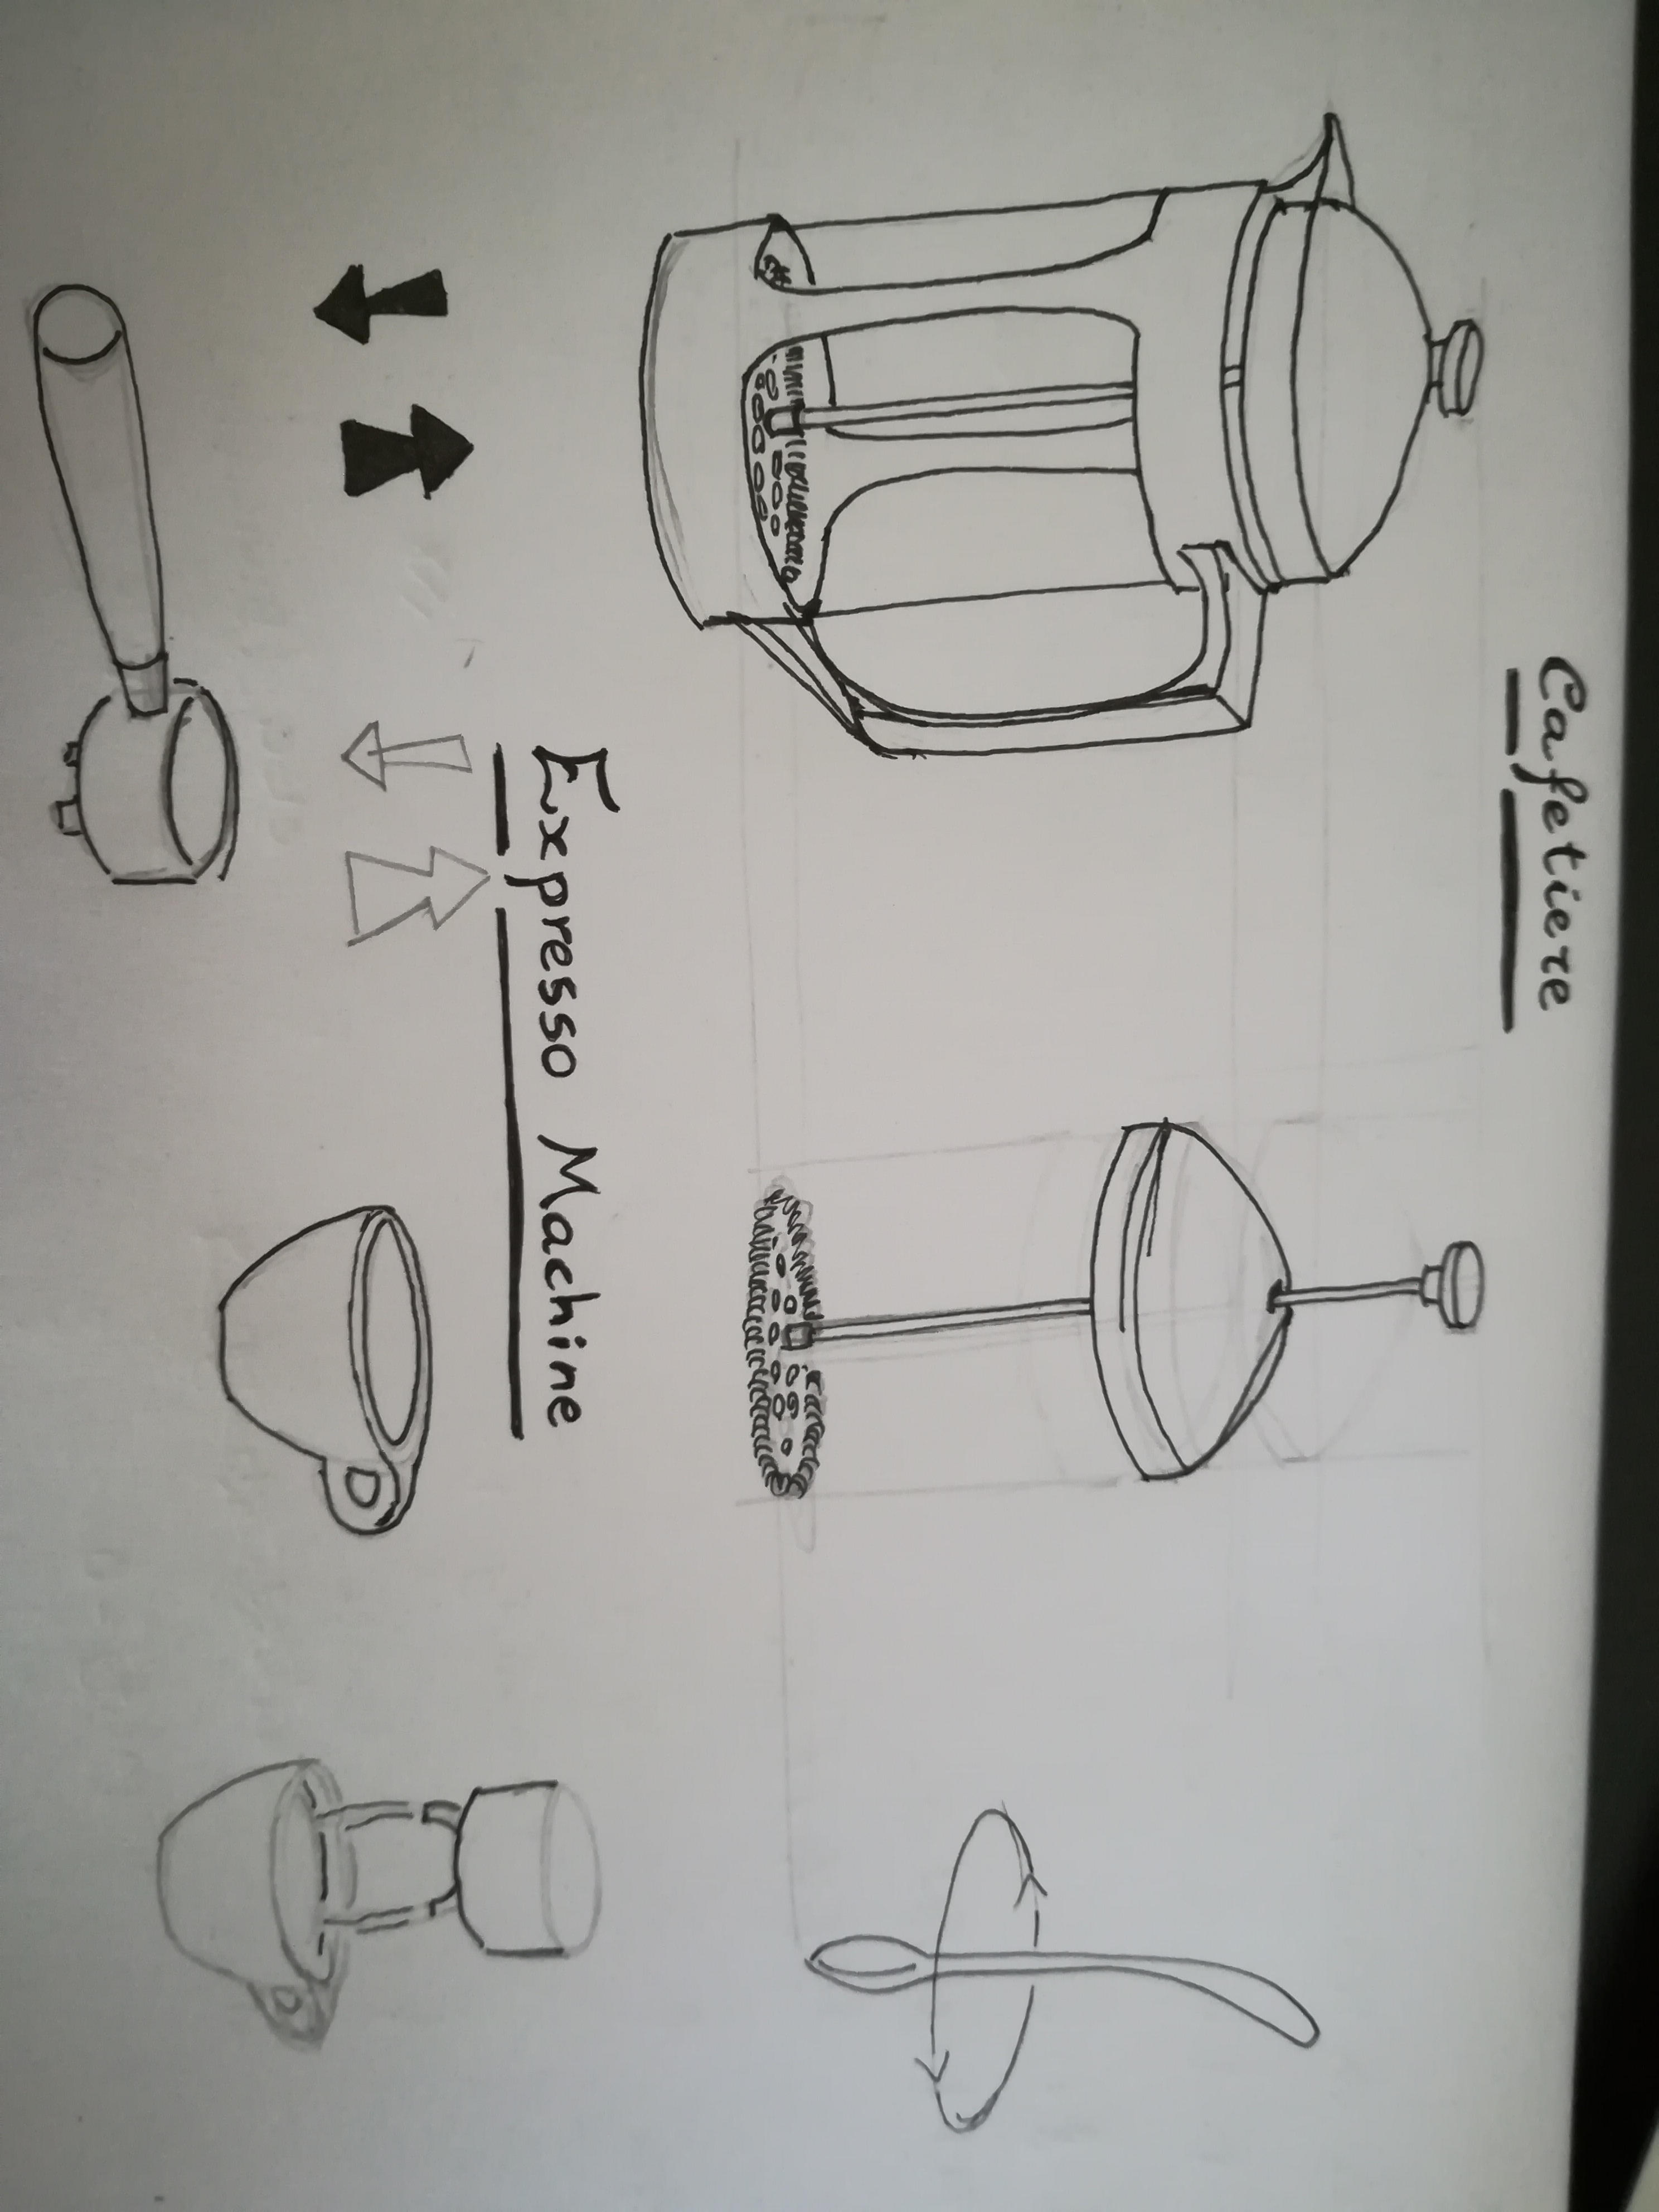 Cafetiere
Expresso Machine